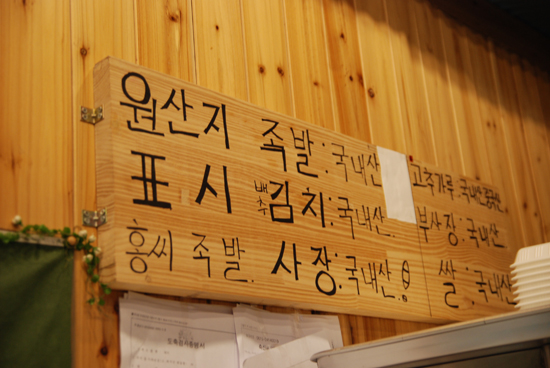 원산지 족발:국내산 고추가루:국내산
표시 배추김치:국내산. 부산장:국내산
홍씨족발 사장:국내산. 쌀:국내산